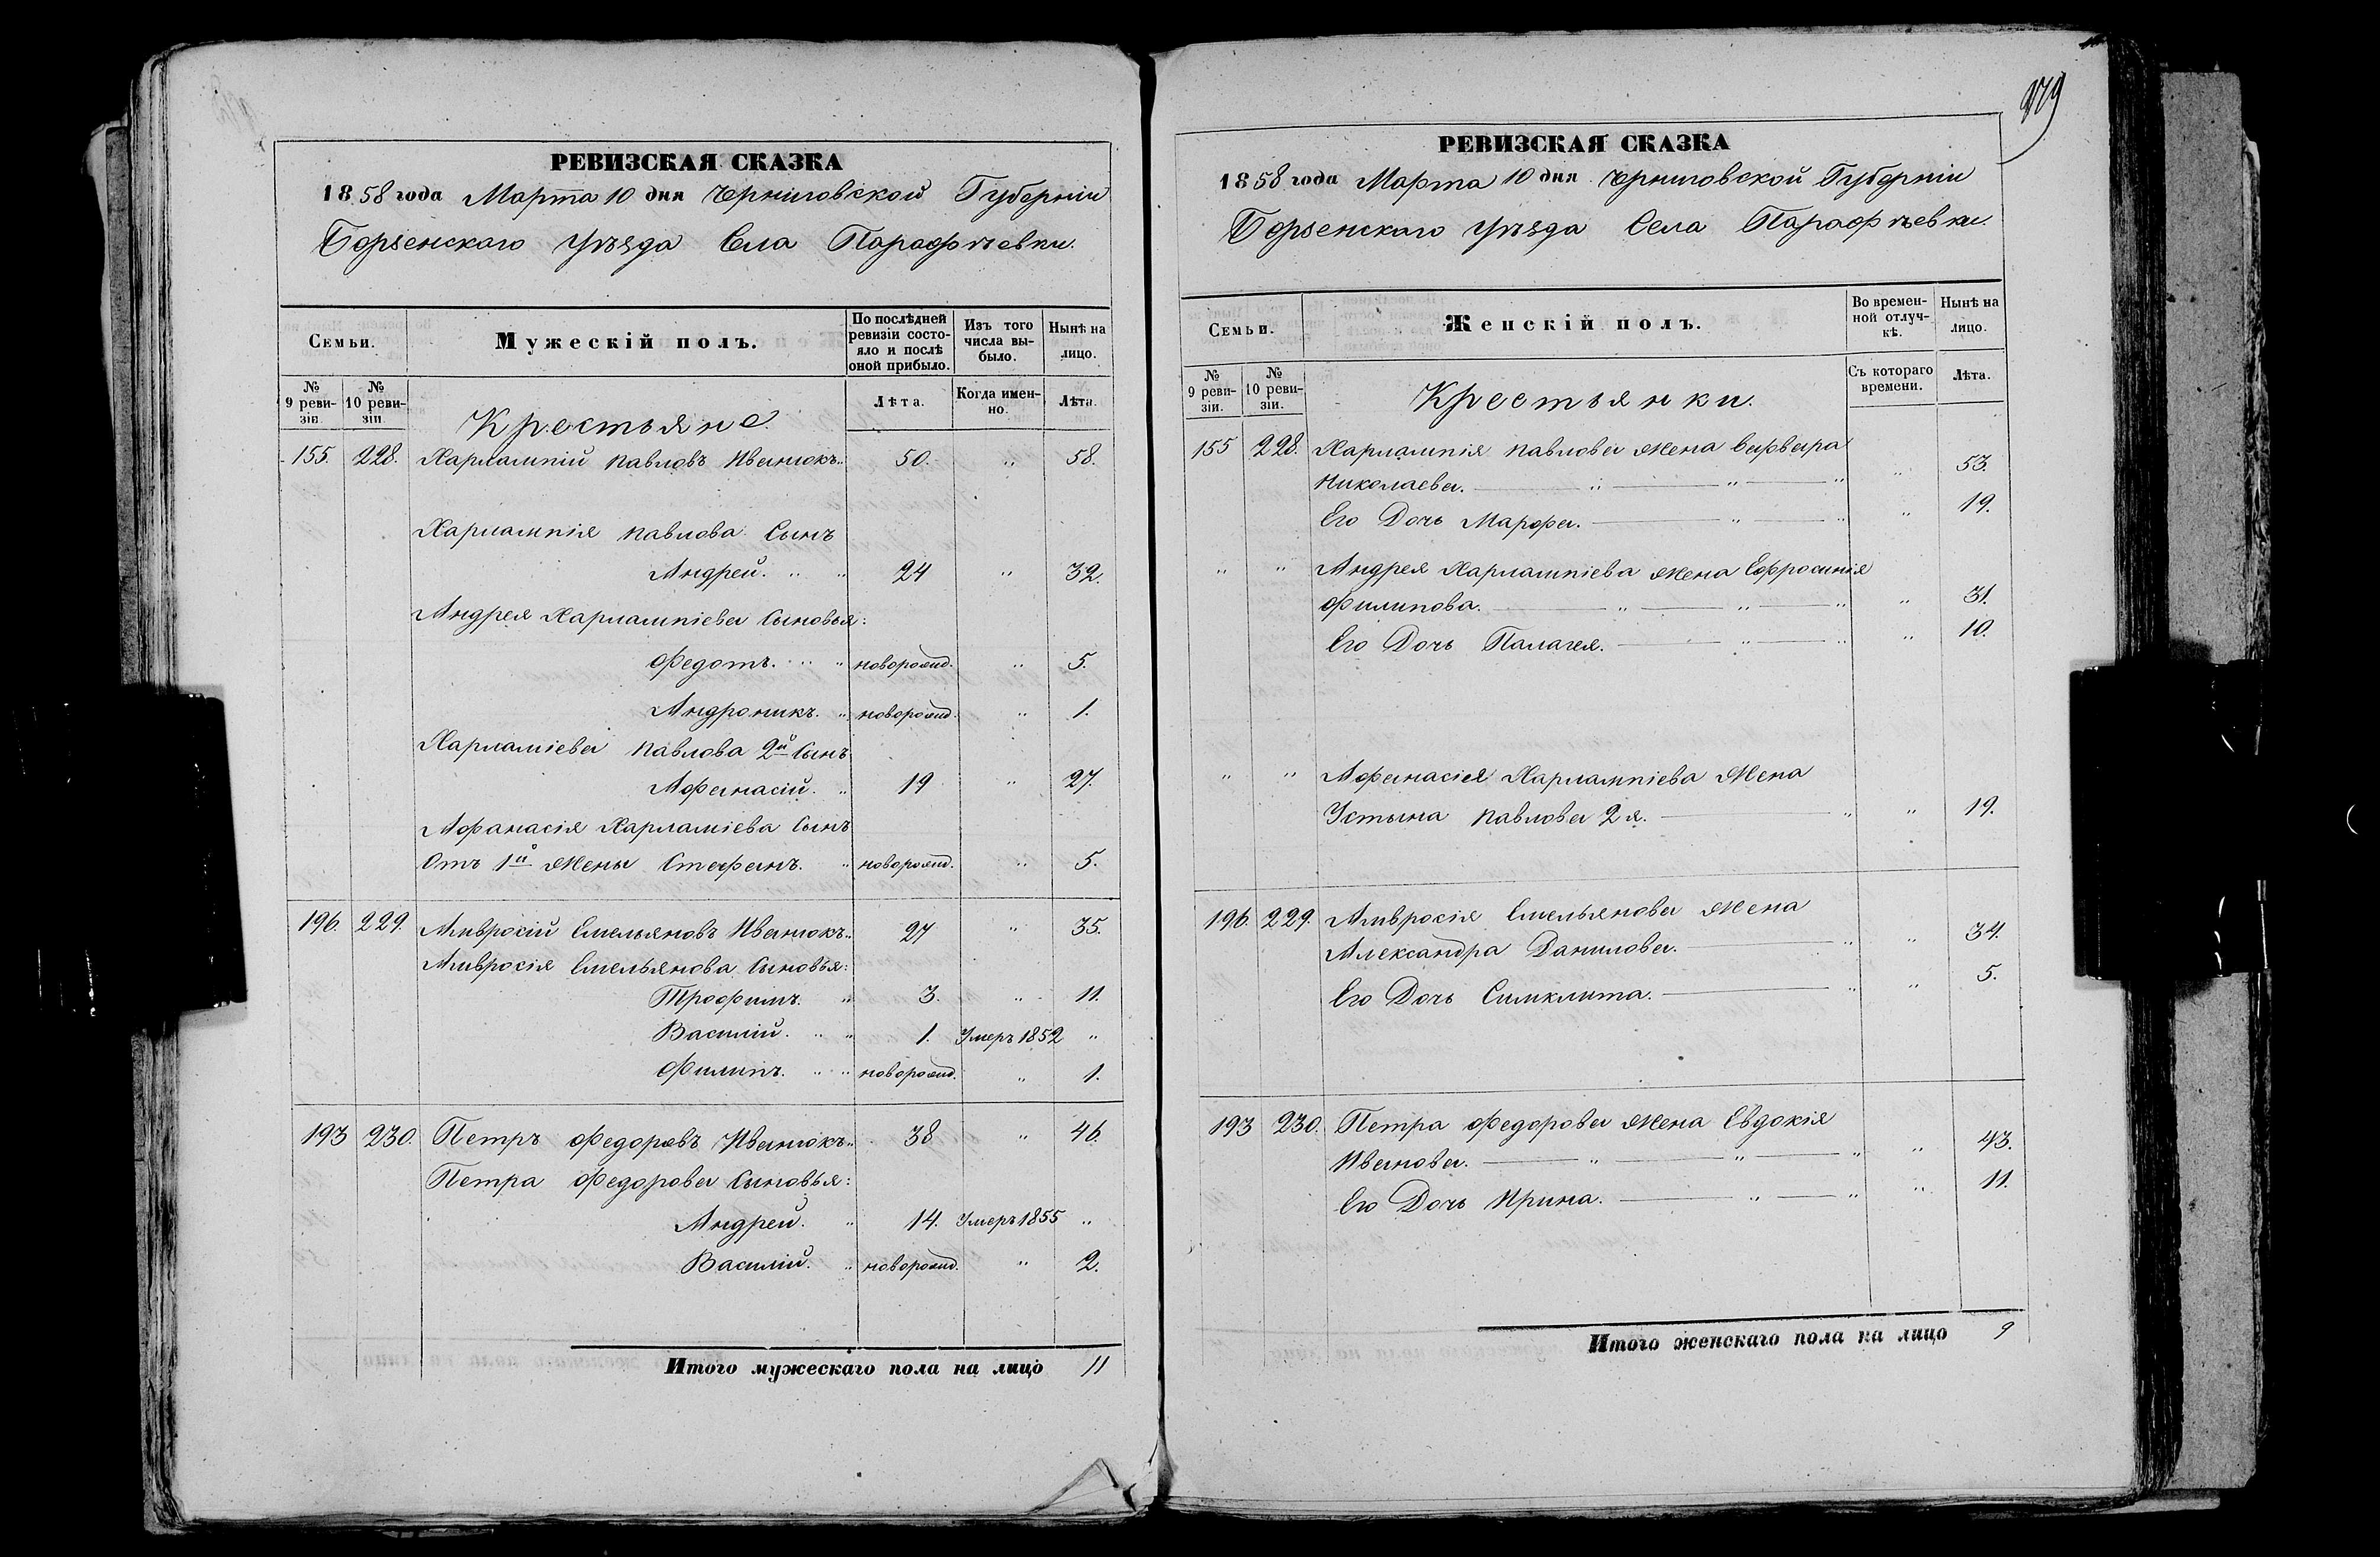 РЕВИЗСКАЯ СКАЗКА
1858 года Марта 10 дня Черниговской Губерніи
Борзенскаго Уѣзда Села Парафѣевки.
Семьи.
Мужескій полъ.
По послѣдней ревизіи состояло и послѣ оной прибыло.
Изъ того числа выбыло.
Нынѣ на лицо.
№ 9 ревизіи.
№ 10 ревизіи.
Лѣта.
Когда именно.
Лѣта.
Крестьяне.
155. 228. Харлампій Павловъ Иванюкъ.. 50. " 58.
Харлампія Павлова Сынъ
Андрей. " " 24 " 32.
Андрея Харлампіева Сыновья:
Федотъ. " " новорожд. " 5.
Андроникъ. " новорожд. " 1.
Харламіева Павлова 2й Сынъ
Афанасій. " 19 " 27.
Афанасія Харламіева Сынъ
Отъ 1й Жены Стефанъ. " новорожд. " 5.
196. 229. Амвросій Емельяновъ Иванюкъ.. 27 " 35.
Амвросія Емельянова Сыновья:
Трофимъ. " 3. " 11.
Василій. " " 1. Умеръ 1852 "
Филипъ. " " новорожд. " 1.
193 230. Петръ Федоровъ Иванюкъ.. 38 " 46.
Петра Федорова Сыновья:
Андрей. " 14. Умеръ 1855 "
Василий. " новорожд. " 2.
Итого мужескаго пола на лицо 11
179
РЕВИЗСКАЯ СКАЗКА
1858 года Марта 10 дня Черниговской Губерніи
Борзенскаго Уѣзда Села Парафѣевки.
Семьи.
Женскій полъ.
Во временной отлучкѣ.
Нынѣ на лицо.
№ 9 ревизіи.
№ 10 ревизіи.
Съ котораго времени.
Лѣта.
Крестьянки.
155 228. Харлампія Павлова Жена Варвара
Николаева. " " " " 53.
Его Дочь Марфа. " " " 19.
" " Андрея Харлампіева Жена Ефросинія
Филипова. " " " " 31.
Его Дочь Палагея. " " " 10.
" " Афанасія Харлампіева Жена
Устына Павлова 2я. " " 19.
196. 229. Амвросія Емельянова Жена
Александра Данилова. " " 34.
Его Дочь Симклита. " " 5.
193 230. Петра Федорова Жена Евдокія
Иванова. " " " " 43.
Его Дочь Ирина. " " " 11.
Итого женскаго пола на лицо 9